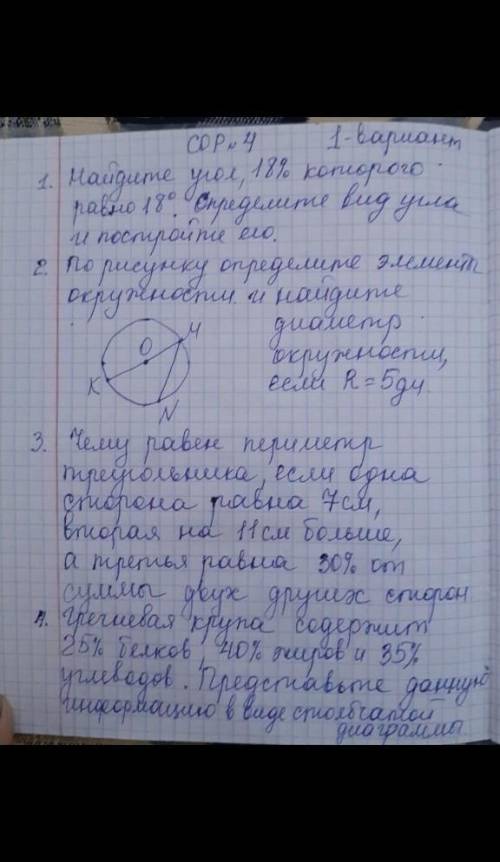 СОР №4 1-вариант
1. Найдите угол, 18% которого
равно 18°. Определите вид угла
и постройте его.
2. По рисунку определите элементы
окружности и найдите
диаметр
окружности,
если R = 5дм
O
M
K
N
3. Чему равен периметр
треугольника, если одна
сторона равна 7см,
вторая на 11см больше,
а третья равна 30% от
суммы двух других сторон
4. Гречневая крупа содержит
25% белков, 40% жиров и 35%
углеводов. Представьте данную
информацию в виде столбчатой
диаграммы